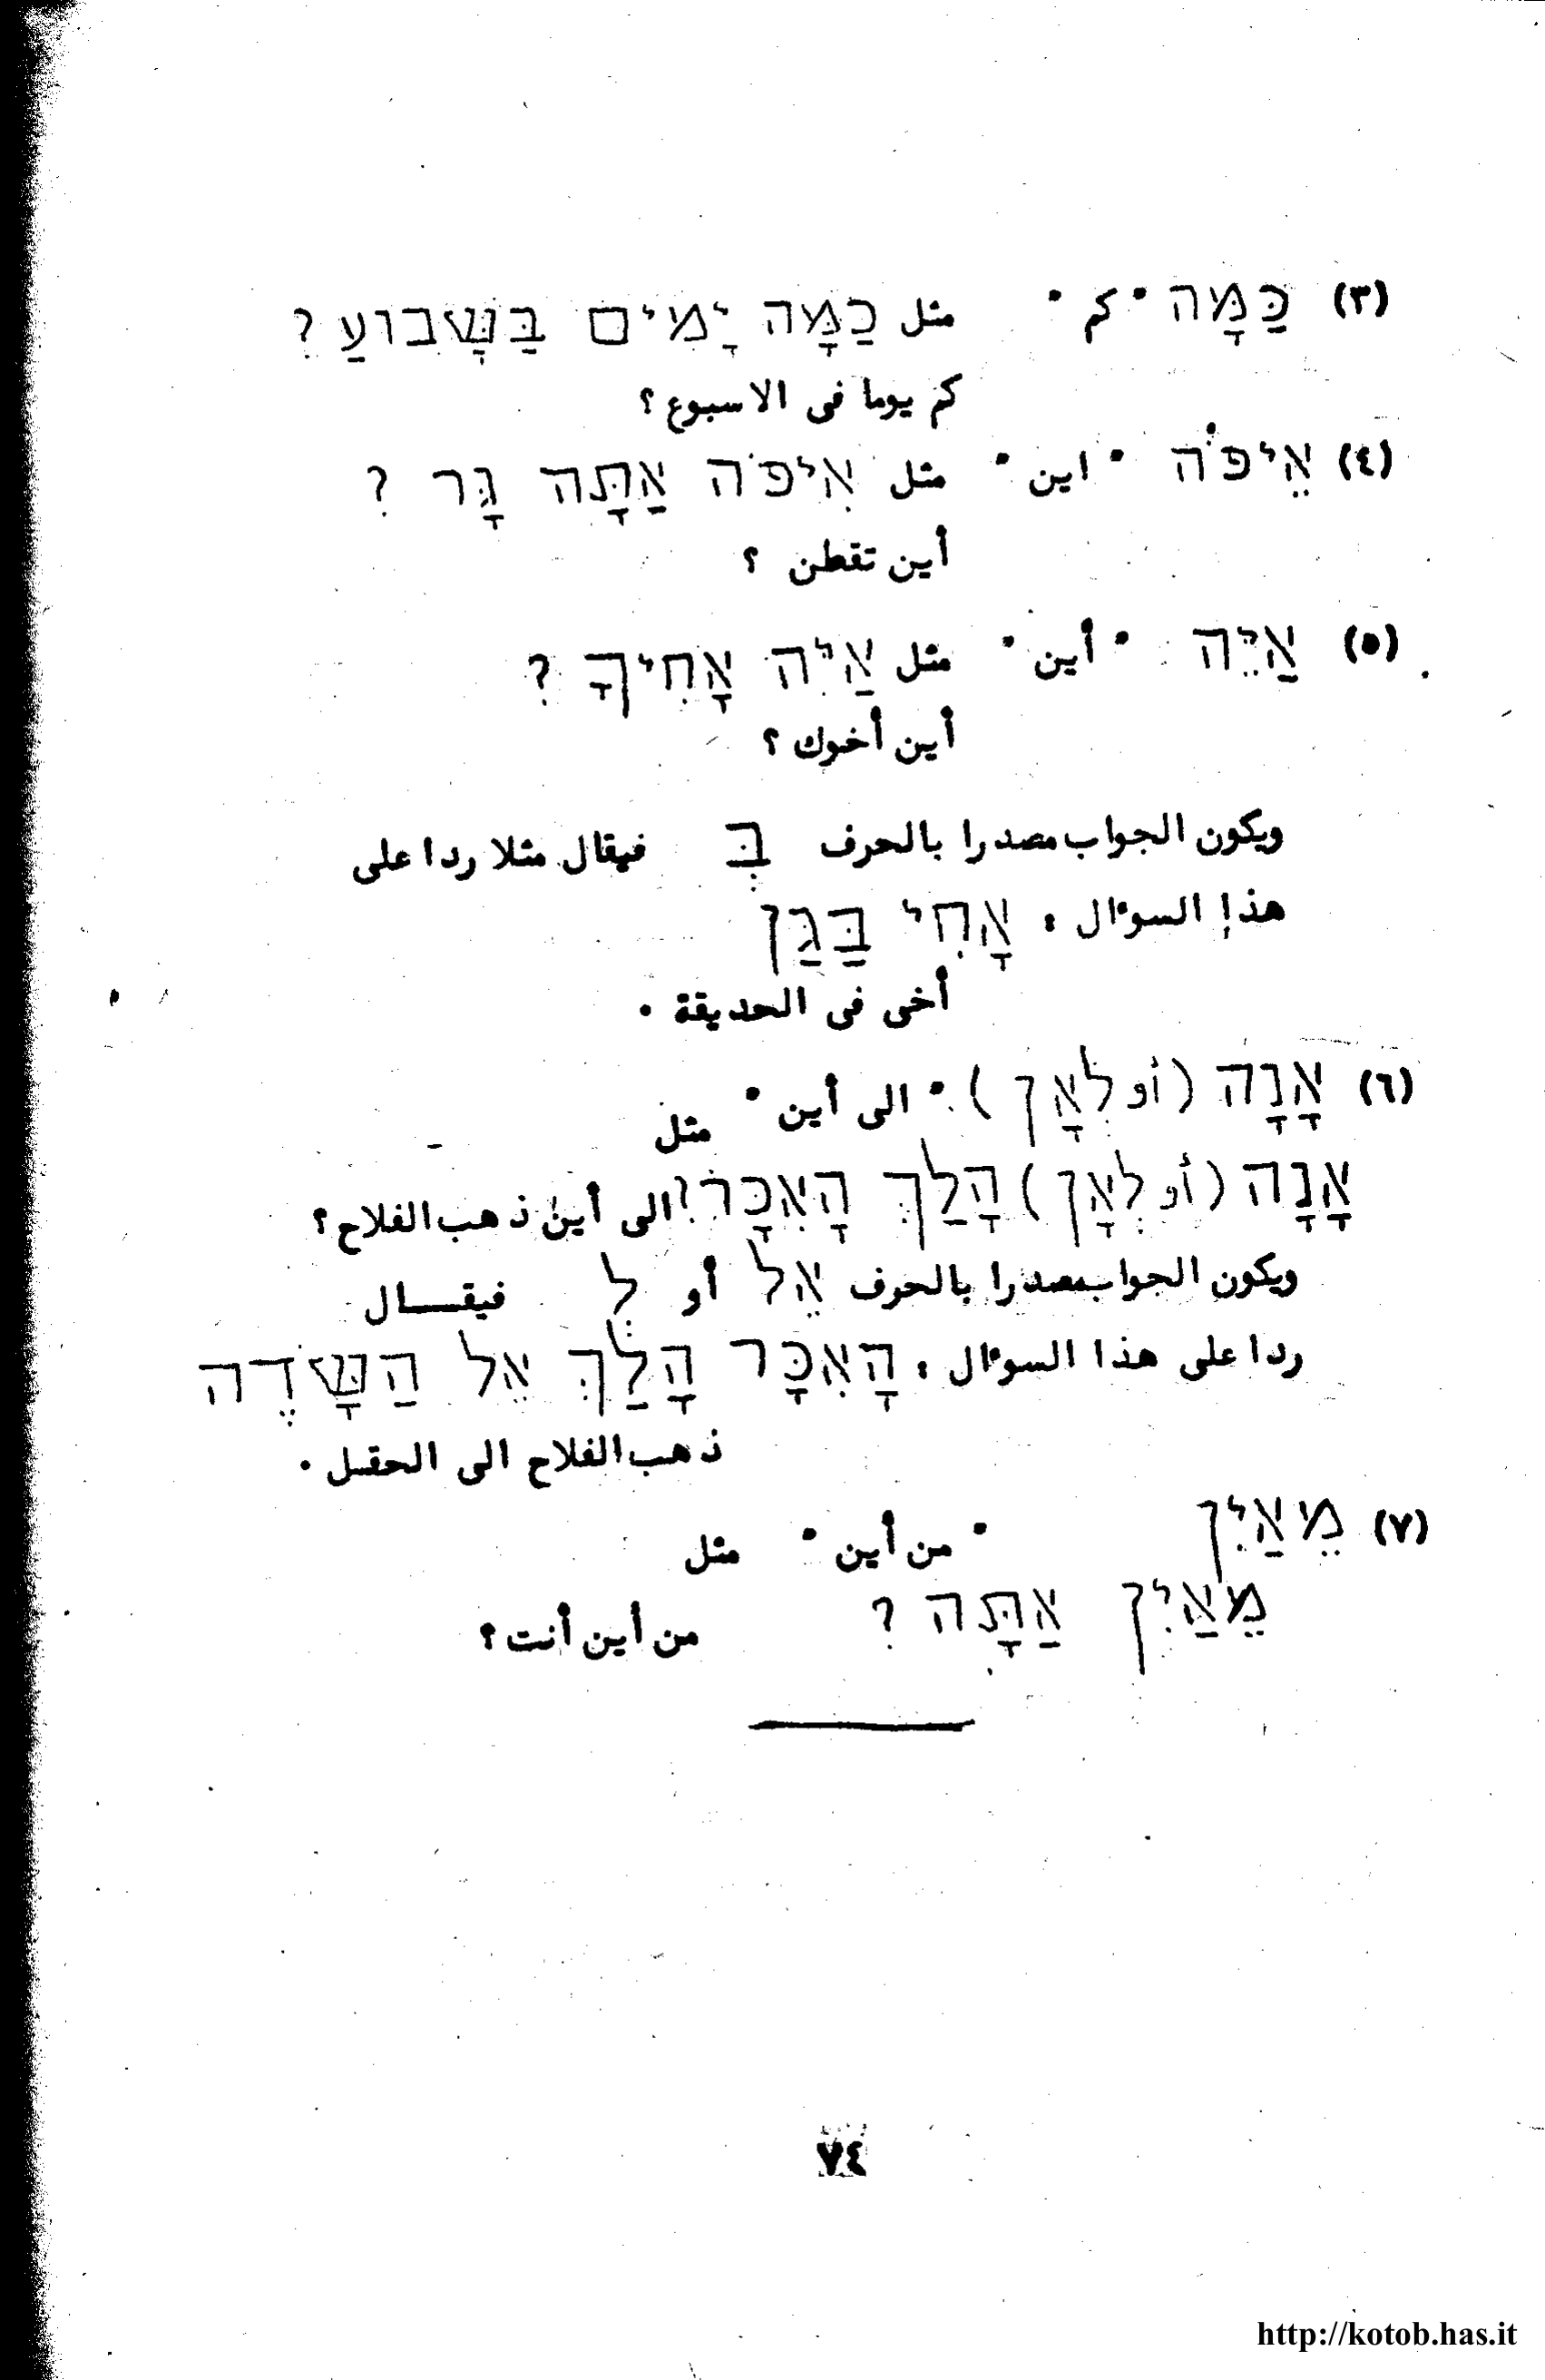 (٣) כַּמָּה " كم " مثل כַמָּה יָמִים בַּשָּׁבוּעַ ?
كم يوما فى الاسبوع ؟
(٤) אֵיפֹּה " اين " مثل אִיפֹּה אַתָּה גָּר ?
أين تقطن ؟
(٥) אַיֵּה " أين " مثل אַיִּה אָחִיךָ ?
أين أخوك ؟
ويكون الجواب مصدرا بالحرف בְּ فيقال مثلا ردا على
هذا السؤال : אָחִי בַּגַּן
أخى فى الحديقة .
(٦) אָנָה (أو לְאָן) " الى أين " مثل
אָנָה (أو לְאָן) הָלַךְ הָאִכָּר? الى أين ذهب الفلاح ؟
ويكون الجواب مصدرا بالحرف אֵל أو לְ فيقـــال
ردا على هذا السؤال : הָאִכָּר הָלַךְ אֵל הַשָּׂדֶה
ذهب الفلاح الى الحقل .
(٧) מֵאַיִן " من أين " مثل
מֵאַיִן אַתָּה ? من أين أنت ؟
٧٤
http://kotob.has.it